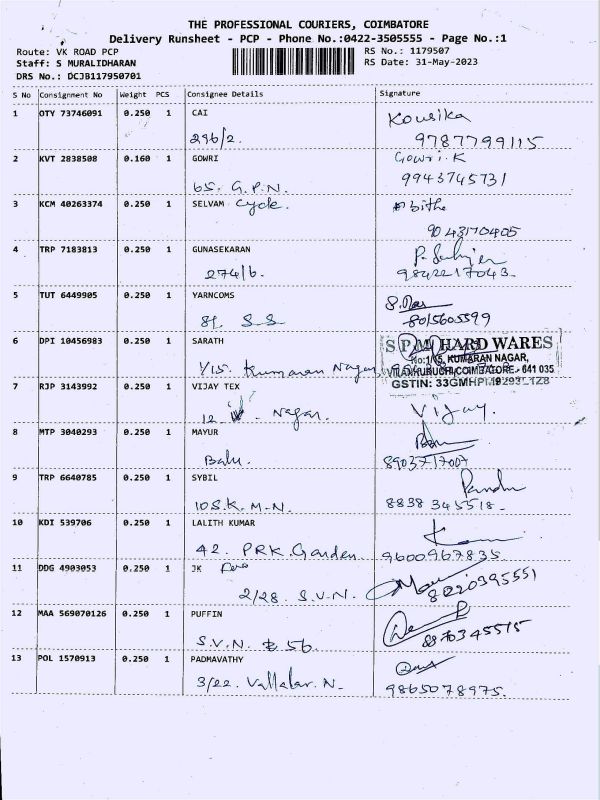 THE PROFESSIONAL COURIERS, COIMBATORE
Delivery Runsheet - PCP - Phone No.:0422-3505555 - Page No.:1
Route: VK ROAD PCP RS No.: 1179507
Staff: S MURALIDHARAN RS Date: 31-May-2023
DRS No.: DCJB117950701
S No Consignment No Weight PCS Consignee Details Signature
1 OTY 73746091 0.250 1 CAI Kousika
296/2. 9787799115
2 KVT 2838508 0.160 1 GOWRI Gowri.K
65. G.P.N. 9943745731
3 KCM 40263374 0.250 1 SELVAM Cycle. bithe
9043170405
4 TRP 7183813 0.250 1 GUNASEKARAN
274/6. 9842217043.
5 TUT 6449905 0.250 1 YARNCOMS
81. S.S 8015605599
6 DPI 10456983 0.250 1 SARATH S P M HARD WARES
1/15. Kumaran Nagar No:1/15, KUMARAN NAGAR,
COIMBATORE - 641 035
7 RJP 3143992 0.250 1 VIJAY TEX GSTIN:
12. Nagar. Vijay.
8 MTP 3040293 0.250 1 MAYUR
Balu. 8903717007
9 TRP 6640785 0.250 1 SYBIL
10 S.K.M.N. 8838345518.
10 KDI 539706 0.250 1 LALITH KUMAR
42. PRK Garden 9600967835
11 DDG 4903053 0.250 1 JK
2/28. S.V.N. 8220395551
12 MAA 569070126 0.250 1 PUFFIN
S.V.N. 56. 8870345515
13 POL 1570913 0.250 1 PADMAVATHY
3/22. Vallalar. N. 9865078975.